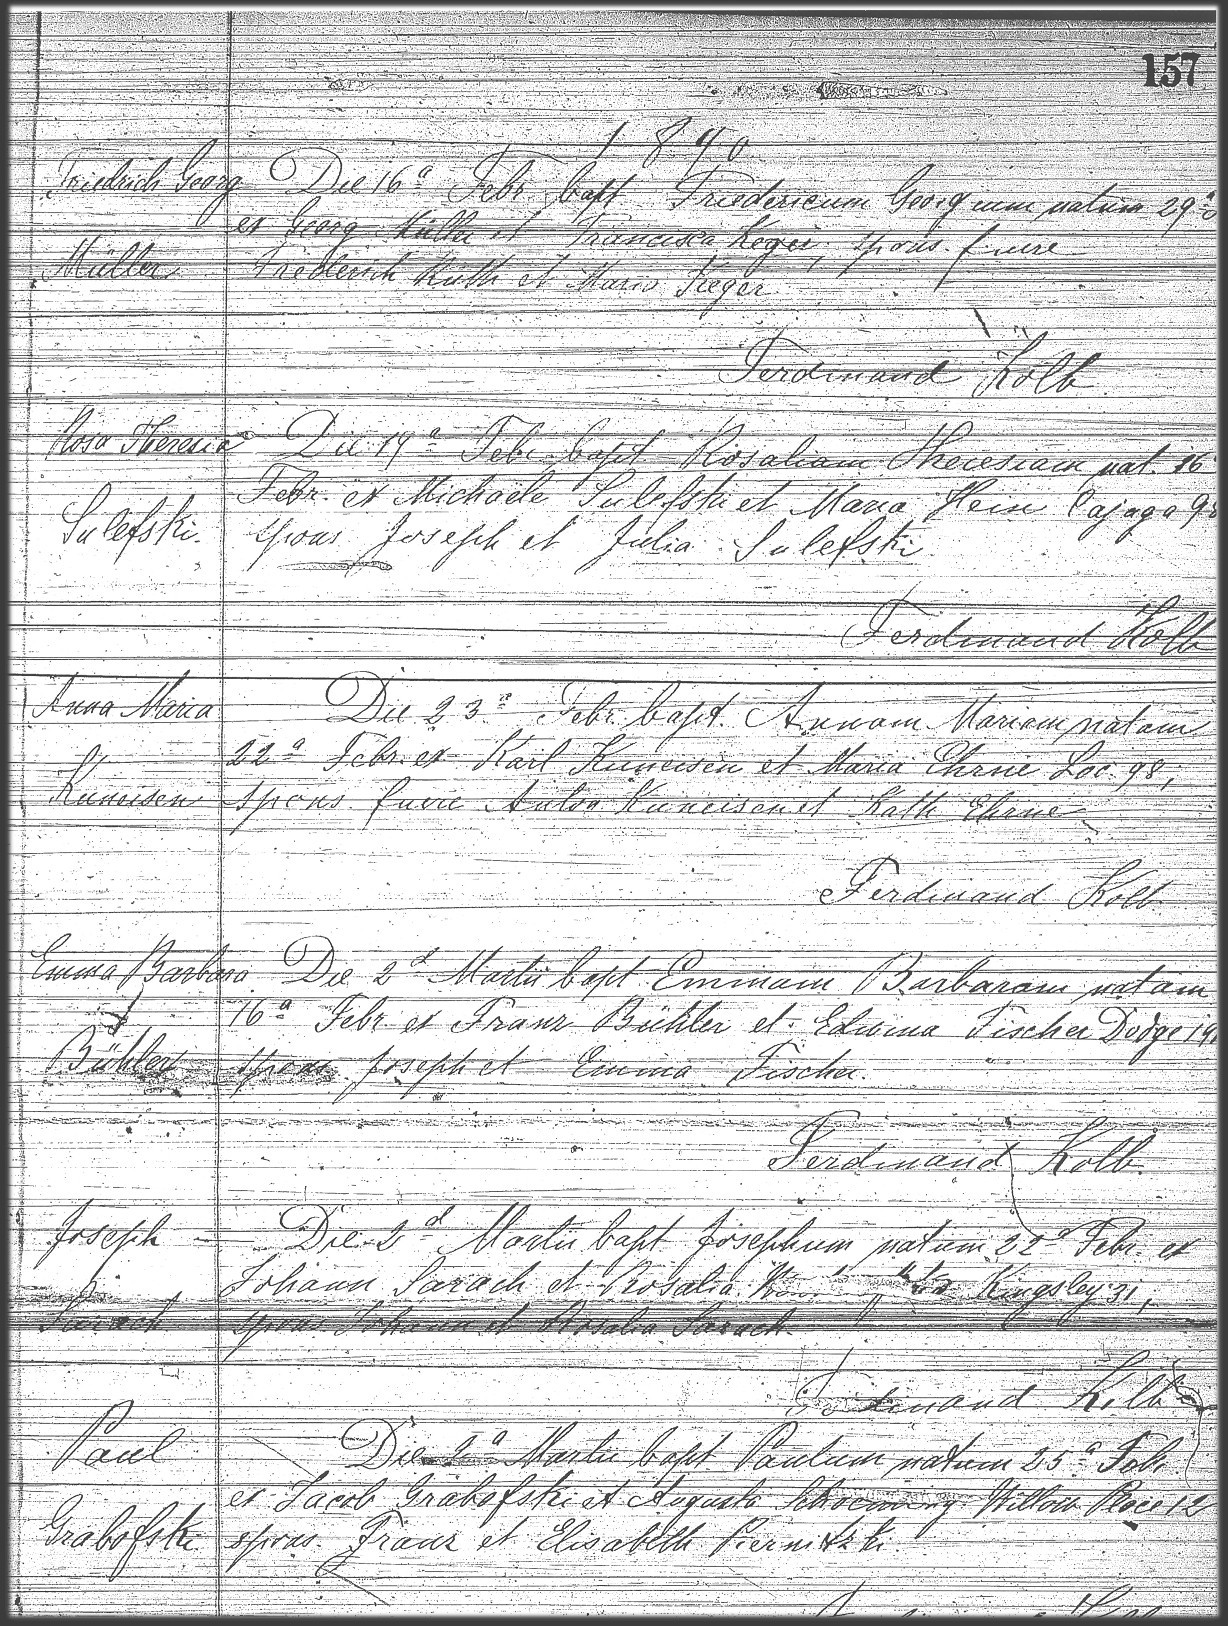 157
1890
Friedrich Georg Die 16ª Febr. bapt Fridericum Georgium natum 29ª
ex Georg Müller et Francisca Keger, spons. fuere
Müller Frederich Kuth et Maria Kieger
Ferdinand Kolb
Rosa Theresia Die 19ª Febr. bapt Rosaliam Theresiam nat. 16
Febr. ex Michaele Sulefski et Maria Hein Cajaga 98
Sulefski. spons Joseph et Julia Sulefski
Ferdinand Kolb
Anna Maria Die 23ª Febr. bapt. Annam Mariam natam
22ª Febr. ex Karl Kuneisen et Maria Ehrne Loc. 98;
Kuneisen spons fuere Anton Kuneisen et Kath Ehrne
Ferdinand Kolb
Emma Barbara Die 2ª Martii bapt Emmam Barbaram natam
16ª Febr ex Franz Bühler et Edwina Fischer Dodge 19
Bühler spons. Joseph et Emma Fischer.
Ferdinand Kolb.
Joseph Die 2ª Martii bapt Josephum natum 22ª Febr. ex
Johann Sarach et Rosalia Kingsley 31,
Sarach spons. Johann et Rosalia Sarach.
Ferdinand Kolb
Paul Die 2ª Martii bapt Paulum natum 25ª Febr.
ex Jacob Grabofski et Augusta Willow Place 12
Grabofski spons. Franz et Elisabeth Piernitzki.